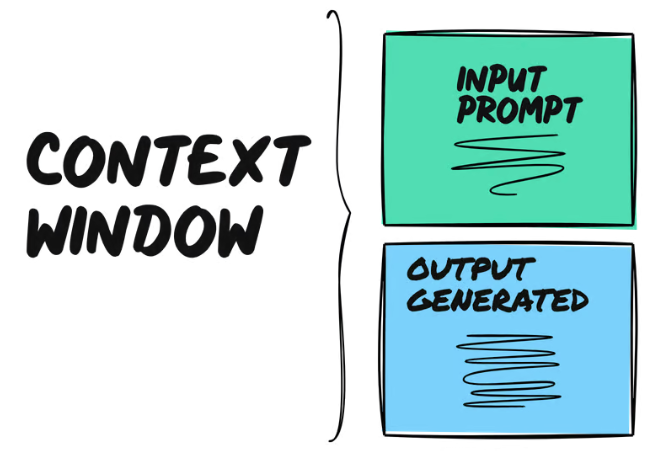 CONTEXT
WINDOW
INPUT
PROMPT
OUTPUT
GENERATED